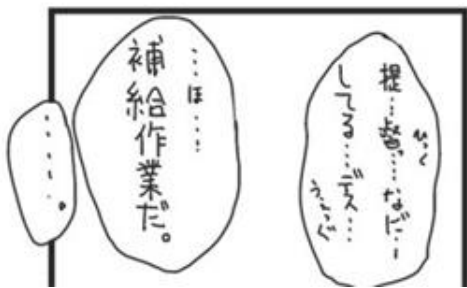 提…督…なに…
してる…デス…
ひっく
うぇっぐ
…ほ…！
補給作業だ。
……。